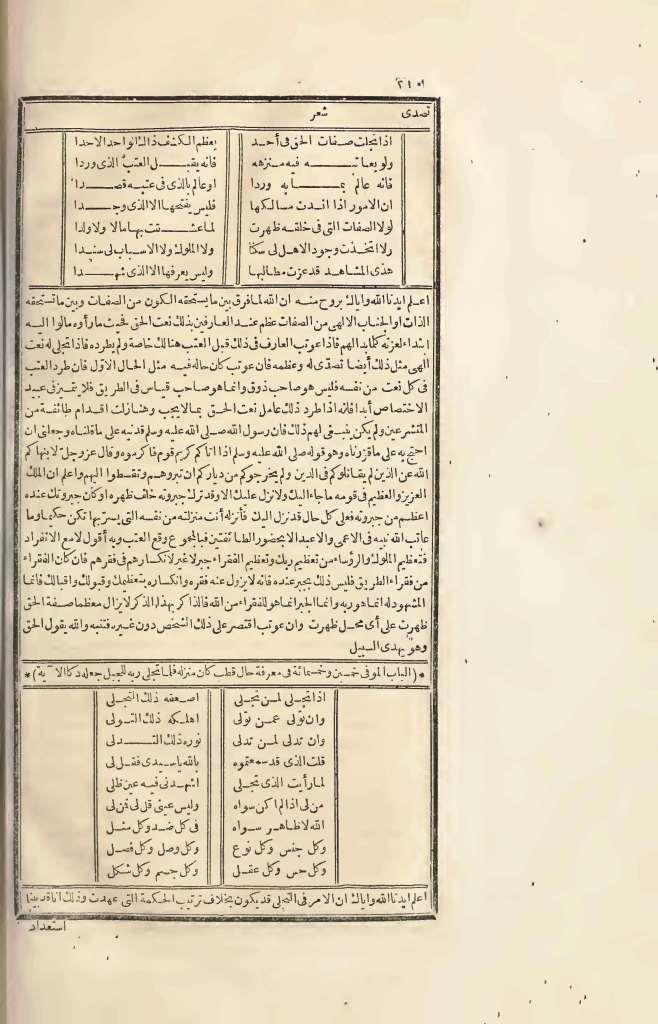 ٢١٥
تصدى شعر
اذا تجلت صفات الحق فى أحد يعظم الكشف ذاك الواحد الاحدا
ولو يعاتبه فيه منزهه فانه يقبل العتب الذى وردا
فانه عالم بما به وردا او عالم بالذى فى عتبه قصدا
ان الامور اذا انسدت مسالكها فليس يفتحها الا الذى وجدا
لولا الصفات التى فى خلقه ظهرت لما عشقت بها مالا ولا ولدا
ولا اتخذت وجود الاهل لى سكنا ولا الملوك ولا الاسباب لى سندا
هذى المشاهد قد عزت مطالبها وليس يعرفها الا الذى شهدا
اعلم ايدنا الله واياك بروح منه ان الله لما فرق بين ما يستحقه الكون من الصفات وبين ما تستحقه
الذات او الجناب الالهى من الصفات عظم عند العارفين بذلك نعت الحق فحيث ما رأوه مالوا اليه
ابتداء لعزته كلما بدا لهم فاذا عوتب العارف فى ذلك قبل العتب هنالك خاصة ولم يطرده فاذا تجلى له نعت
الهى مثل ذلك أيضا تصدى له وعظمه فان عوتب كان حاله فيه مثل الحال الاول فان طرد العتب
فى كل نعت من نفسه فليس هو صاحب ذوق وانما هو صاحب قياس فى الطريق فلا يتميز فى عبيد
الاختصاص أبدا فانه اذا طرد ذلك عامل نعت الحق بما لا يجب وهنا زلت اقدام طائفة من
المتشرعين ولم يكن ينبغى لهم ذلك فان رسول الله صلى الله عليه وسلم قد نبه على ما قلناه وجعلنى ان
احتج به على ما قررناه وهو قوله صلى الله عليه وسلم اذا اتاكم كريم قوم فاكرموه وقال عز وجل لا ينهاكم
الله عن الذين لم يقاتلوكم فى الدين ولم يخرجوكم من دياركم ان تبروهم وتقسطوا اليهم واعلم ان الملك
العزيز والعظيم فى قومه ما جاء اليك ولا نزل عليك الا وقد ترك جبروته خلف ظهره او كان جبروتك عنده
اعظم من جبروته فعلى كل حال قد نزل اليك فأنزله أنت منزلته من نفسه التى يسر بها تكن حكيما وما
عاتب الله نبيه فى الاعمى والاعبد الا بحضور الطائفتين فبالمجموع وقع العتب وبه أقول لا مع الانفراد
فتعظيم الملوك والرؤساء من تعظيم ربك وتعظيم الفقراء جبر لا غير لانكسارهم فى فقرهم فان كان الفقراء
من فقراء الطريق فليس ذلك بجبر عنده فانه لا يزول عنه فقره وانكساره بتعظيمك وقبولك واقبالك فانما
المشهود له انما هو ربه وانما الجبر انما هو للفقراء من الله فالذاكر بهذا الذكر لا يزال معظما صفة الحق
ظهرت على أى محل ظهرت وان عوتب اقتصر على ذلك الشخص دون غيره فتنبه والله يقول الحق
وهو يهدى السبيل
*(الباب الموفى خمسين وخمسمائة فى معرفة حال قطب كان منزله فلما تجلى ربه للجبل جعله دكا الآية)*
اذا تجلى لمن تجلى اصعقه ذلك التجلى
وان تولى عمن تولى اهلكه ذلك التولى
وان تدلى لمن تدلى نوره ذلك التدلى
قلت الذى قد سمعتموه بالله يا سيدى فقل لى
لما رأيت الذى تجلى اشهدنى فيه عين ظلى
من لى اذا لم اكن سواه وليس عينى قل لى فمن لى
الله لا ظاهر سواه فى كل ضد وكل مثل
وكل جنس وكل نوع وكل وصل وكل فصل
وكل حس وكل عقل وكل جسم وكل شكل
اعلم ايدنا الله واياك ان الامر فى التجلى قد يكون بخلاف ترتيب الحكمة التى عهدت وذلك انا قد بينا
استعداد